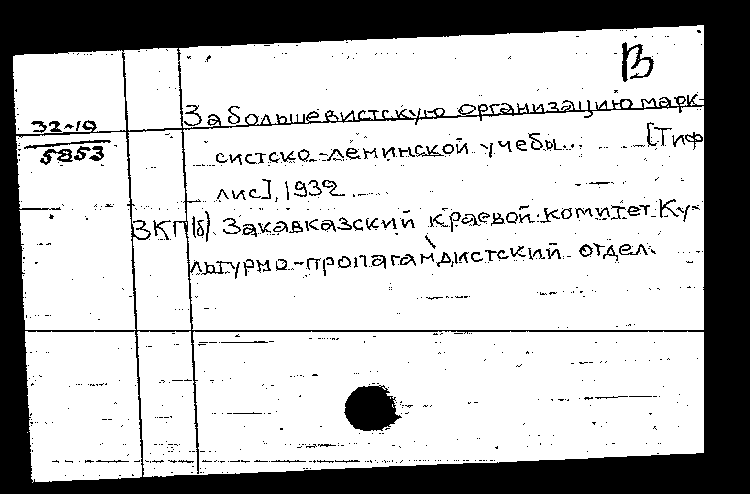 В
32-19
5853
За большевистскую организацию марк-
систско-ленинской учебы... [Тиф
лис], 1932
ЗКП(б) Закавказский краевой комитет. Ку-
льтурно-пропагандистский отдел.